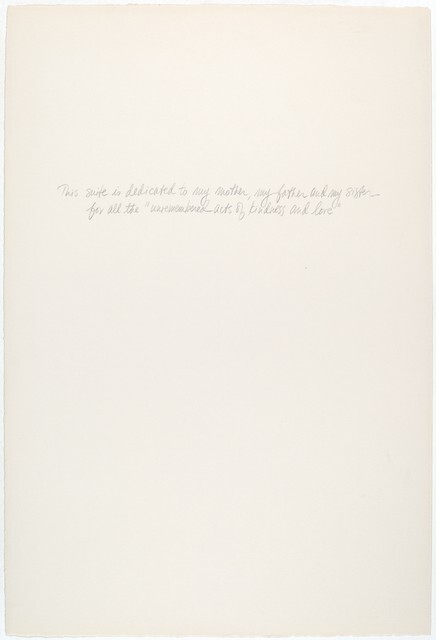 This suite is dedicated to my mother, my father and my sister_
for all the "unremembered acts of kindness and love"